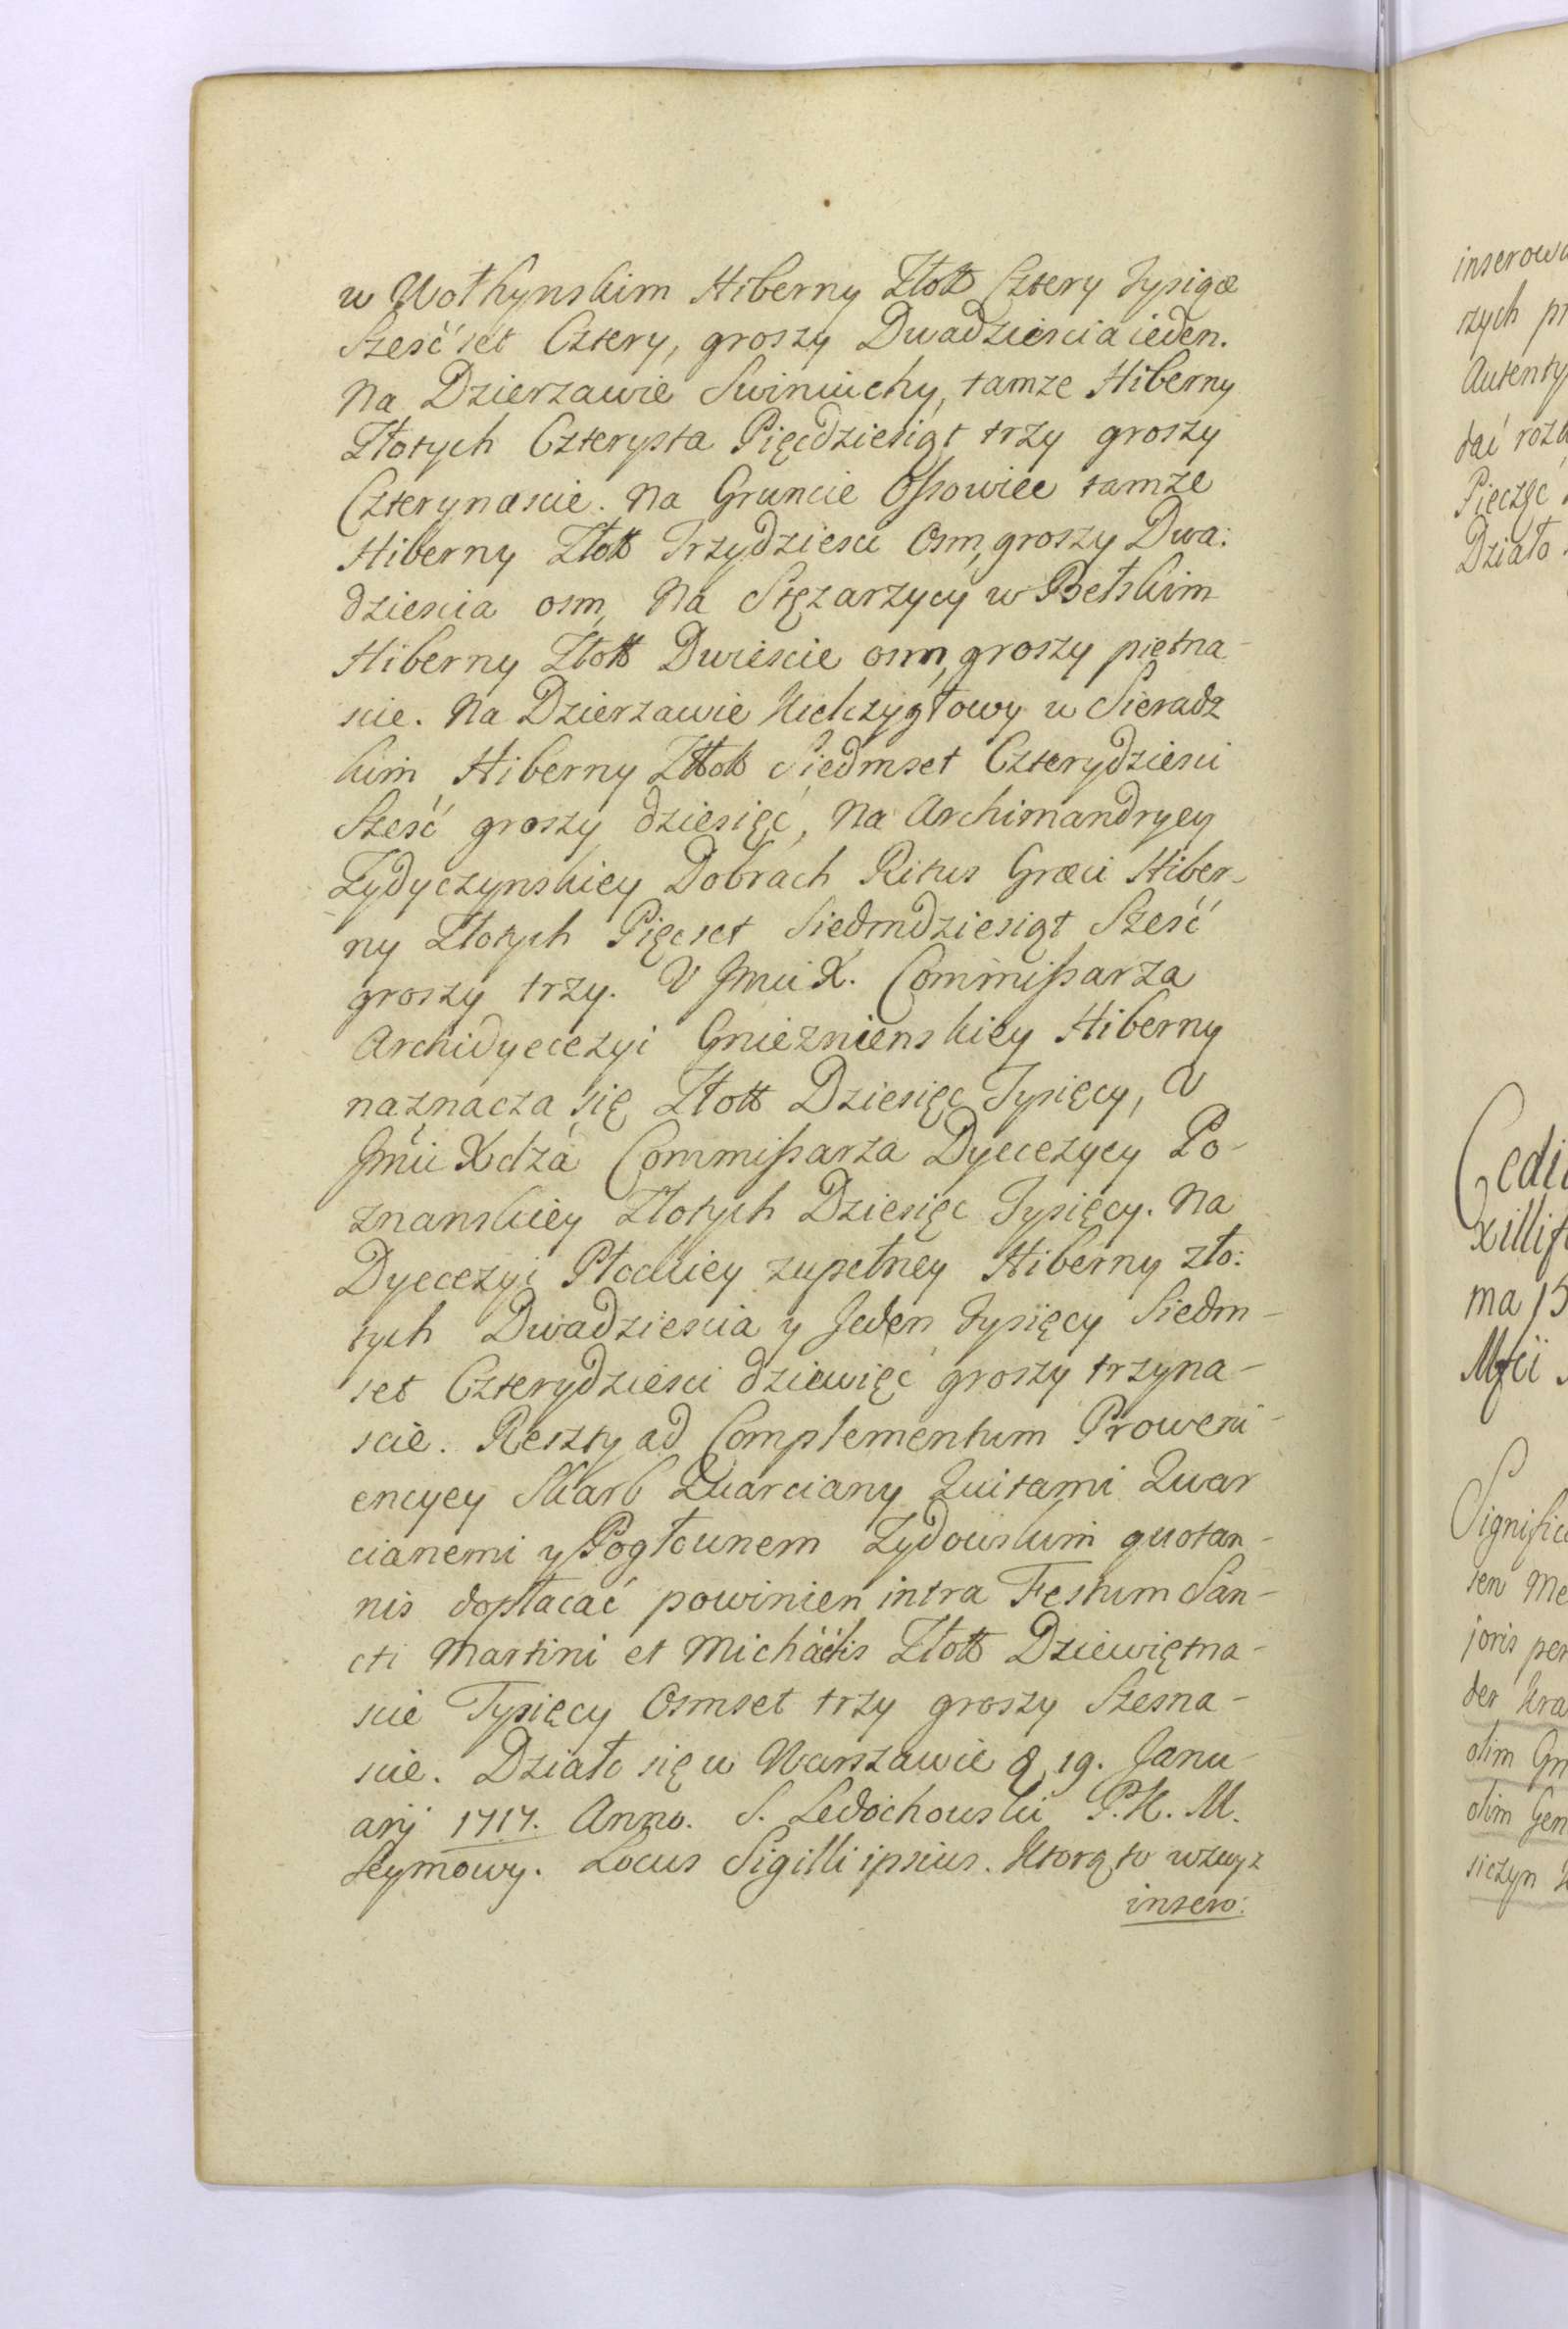 w Wołhynskim Hiberny Złott Cztery Tysiące
Sześć set Cztery, groszy Dwadziescia ieden.
Na Dzierzawie Swiniuchy, tamze Hiberny
Złotych Czterysta Pięcdziesiąt trzy groszy
Czterynascie. Na Gruncie Ossowiec tamze
Hiberny Złott Trzydziesci Osm, groszy Dwa:
dziescia osm, Na Stęzarzycy w Bełskim
Hiberny Złott Dwiescie osm, groszy piętna-
scie. Na Dzierzawie Kiełczygłowy w Sieradz
kim Hiberny Złott Siedmset Czterydziesci
Sześć groszy dziesięć, Na Archimandryey
Zydyczynskiey Dobrach Ritus Græci Hiber-
ny Złotych Pięcset Siedmdziesiąt Sześć
groszy trzy. U Jmci X. Commissarza
Archidyecezyi Gnieznienskiey Hiberny
naznacza się Złott Dziesięc Tysięcy, U
Jmci Xdza Commissarza Dyecezycy Po-
znanskiey Złotych Dziesięc Tysięcy. Na
Dyecezyi Płockiey zupełney Hiberny zło:
tych Dwadziescia y Jeden tysięcy Siedm-
set Czterydziesci dziewięć groszy trzyna-
scie. Reszty ad Complementum Proweni-
encyey Skarb Quarciany Quitami Quar
cianemi y Pogłownem Zydowskim quotan-
nis dopłacać powinien intra Festum San-
cti Martini et Michaelis Złott Dziewiętna-
scie Tysięcy Osmset trzy groszy Szesna-
scie. Działo się w Warszawie d. 19. Janu-
arij 1717. Anno. S. Ledochowski P.K. M.
Seymowy. Locus Sigilli ipsius. Ktorą to wzwyz
insero:
inserowa
szych pr
Autenty
dać rozk
Pieczęć
Działo
Cedi
xillif
ma 15
Mtci
Signific
ten Me
joris per
der Kra
olim Gn
olim Gen
siczyn